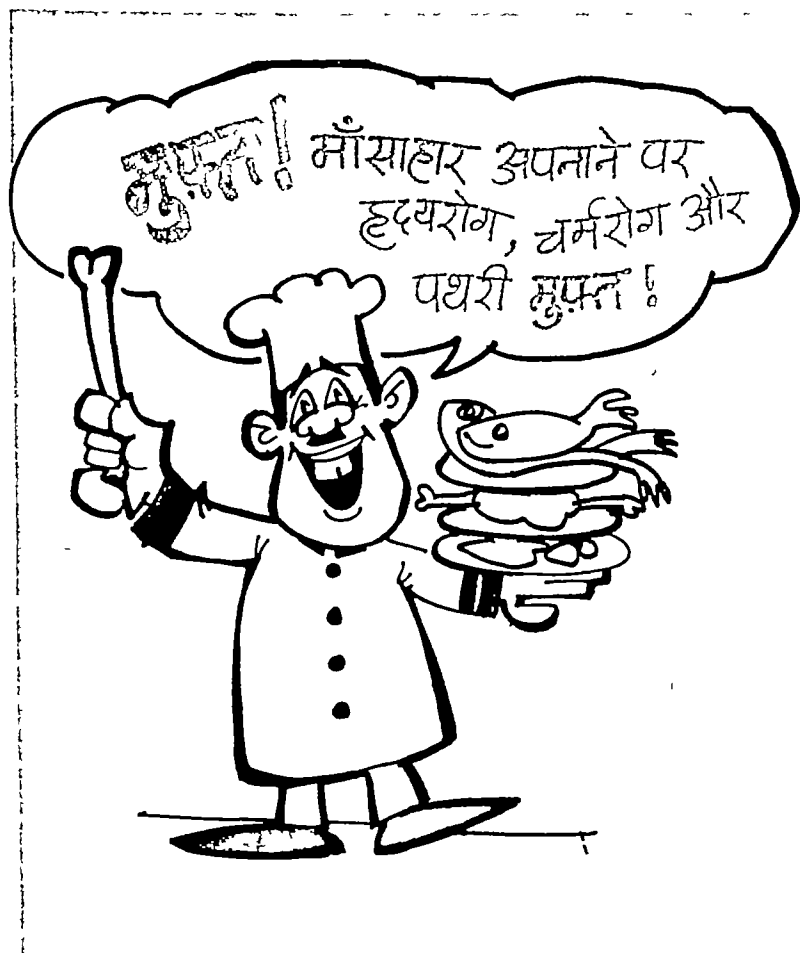 मुफ़्त! माँसाहार अपनाने पर
हृदयरोग, चर्मरोग और
पथरी मुफ़्त!